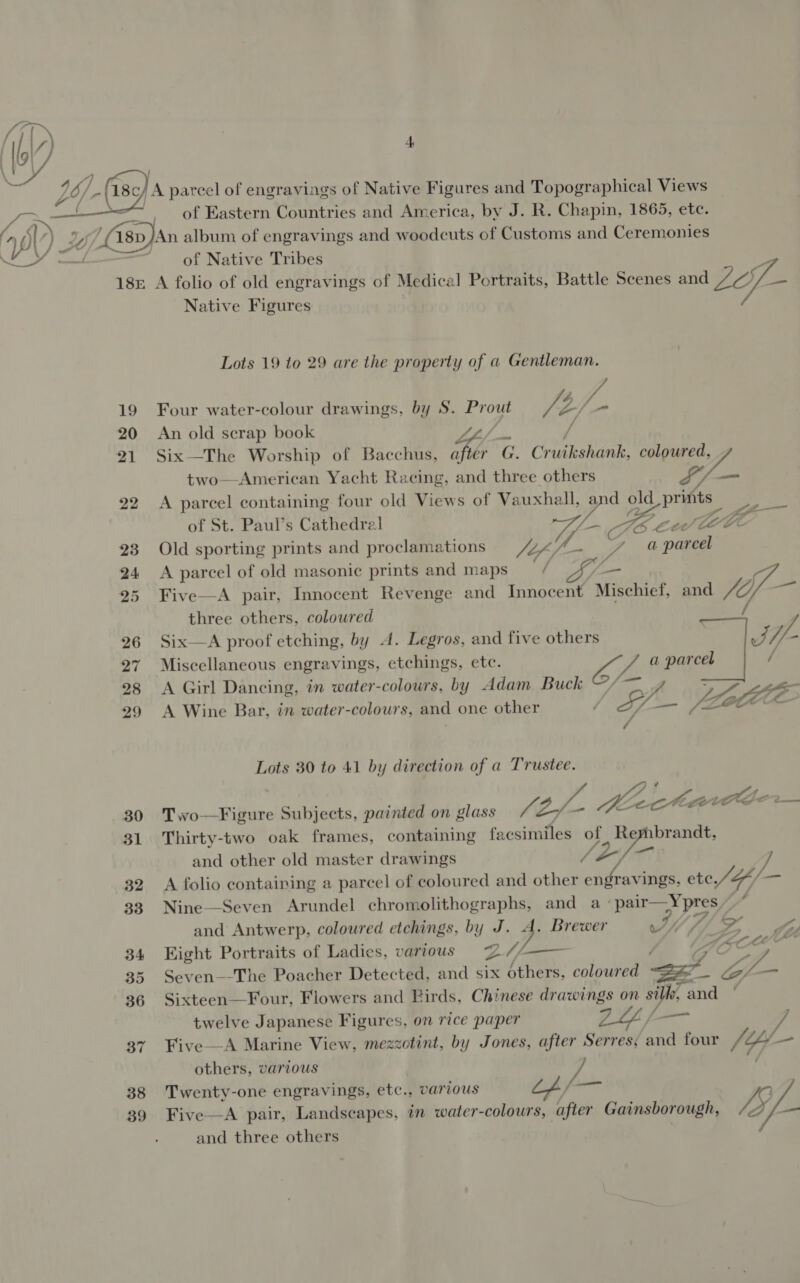 4
16/- 18c A parcel of engravings of Native Figures and Topographical Views
of Eastern Countries and America, by J. R. Chapin, 1865, etc.
18D An album of engravings and woodcuts of Customs and Ceremonies
of Native Tribes
18E A folio of old engravings of Medical Portraits, Battle Scenes and
Native Figures
Lots 19 to 29 are the property of a Gentleman.
19 Four water-colour drawings, by S. Prout 12/-
20 An old scrap book
21 Six—The Worship of Bacchus, after G. Cruikshank, coloured,
two—American Yacht Racing, and three others
22 A parcel containing four old Views of Vauxhall, and old prints
of St. Paul's Cathedral
23 Old sporting prints and proclamations a parcel
24 A parcel of old masonic prints and maps
25 Five—A pair, Innocent Revenge and Innocent Mischief, and 10/-
three others, coloured
26 Six—A proof etching, by A. Legros, and five others
27 Miscellaneous engravings, etchings, etc. a parcel
28 A Girl Dancing, in water-colours, by Adam Buck
29 A Wine Bar, in water-colours, and one other
Lots 30 to 41 by direction of a Trustee.
30 Two—Figure Subjects, painted on glass 12/-
31 Thirty-two oak frames, containing facsimiles of Rembrandt,
and other old master drawings
32 A folio containing a parcel of coloured and other engravings, etc. 
33 Nine—Seven Arundel chromolithographs, and a pair—Ypres
and Antwerp, coloured etchings, by J. A. Brewer
34 Eight Portraits of Ladies, various
35 Seven—The Poacher Detected, and six others, coloured
36 Sixteen—Four, Flowers and Birds, Chinese drawings on silk, and
twelve Japanese Figures, on rice paper
37 Five—A Marine View, mezzotint, by Jones, after Serres, and four 14/-
others, various
38 Twenty-one engravings, etc., various 4/-
39 Five—A pair, Landscapes, in water-colours, after Gainsborough,
and three others